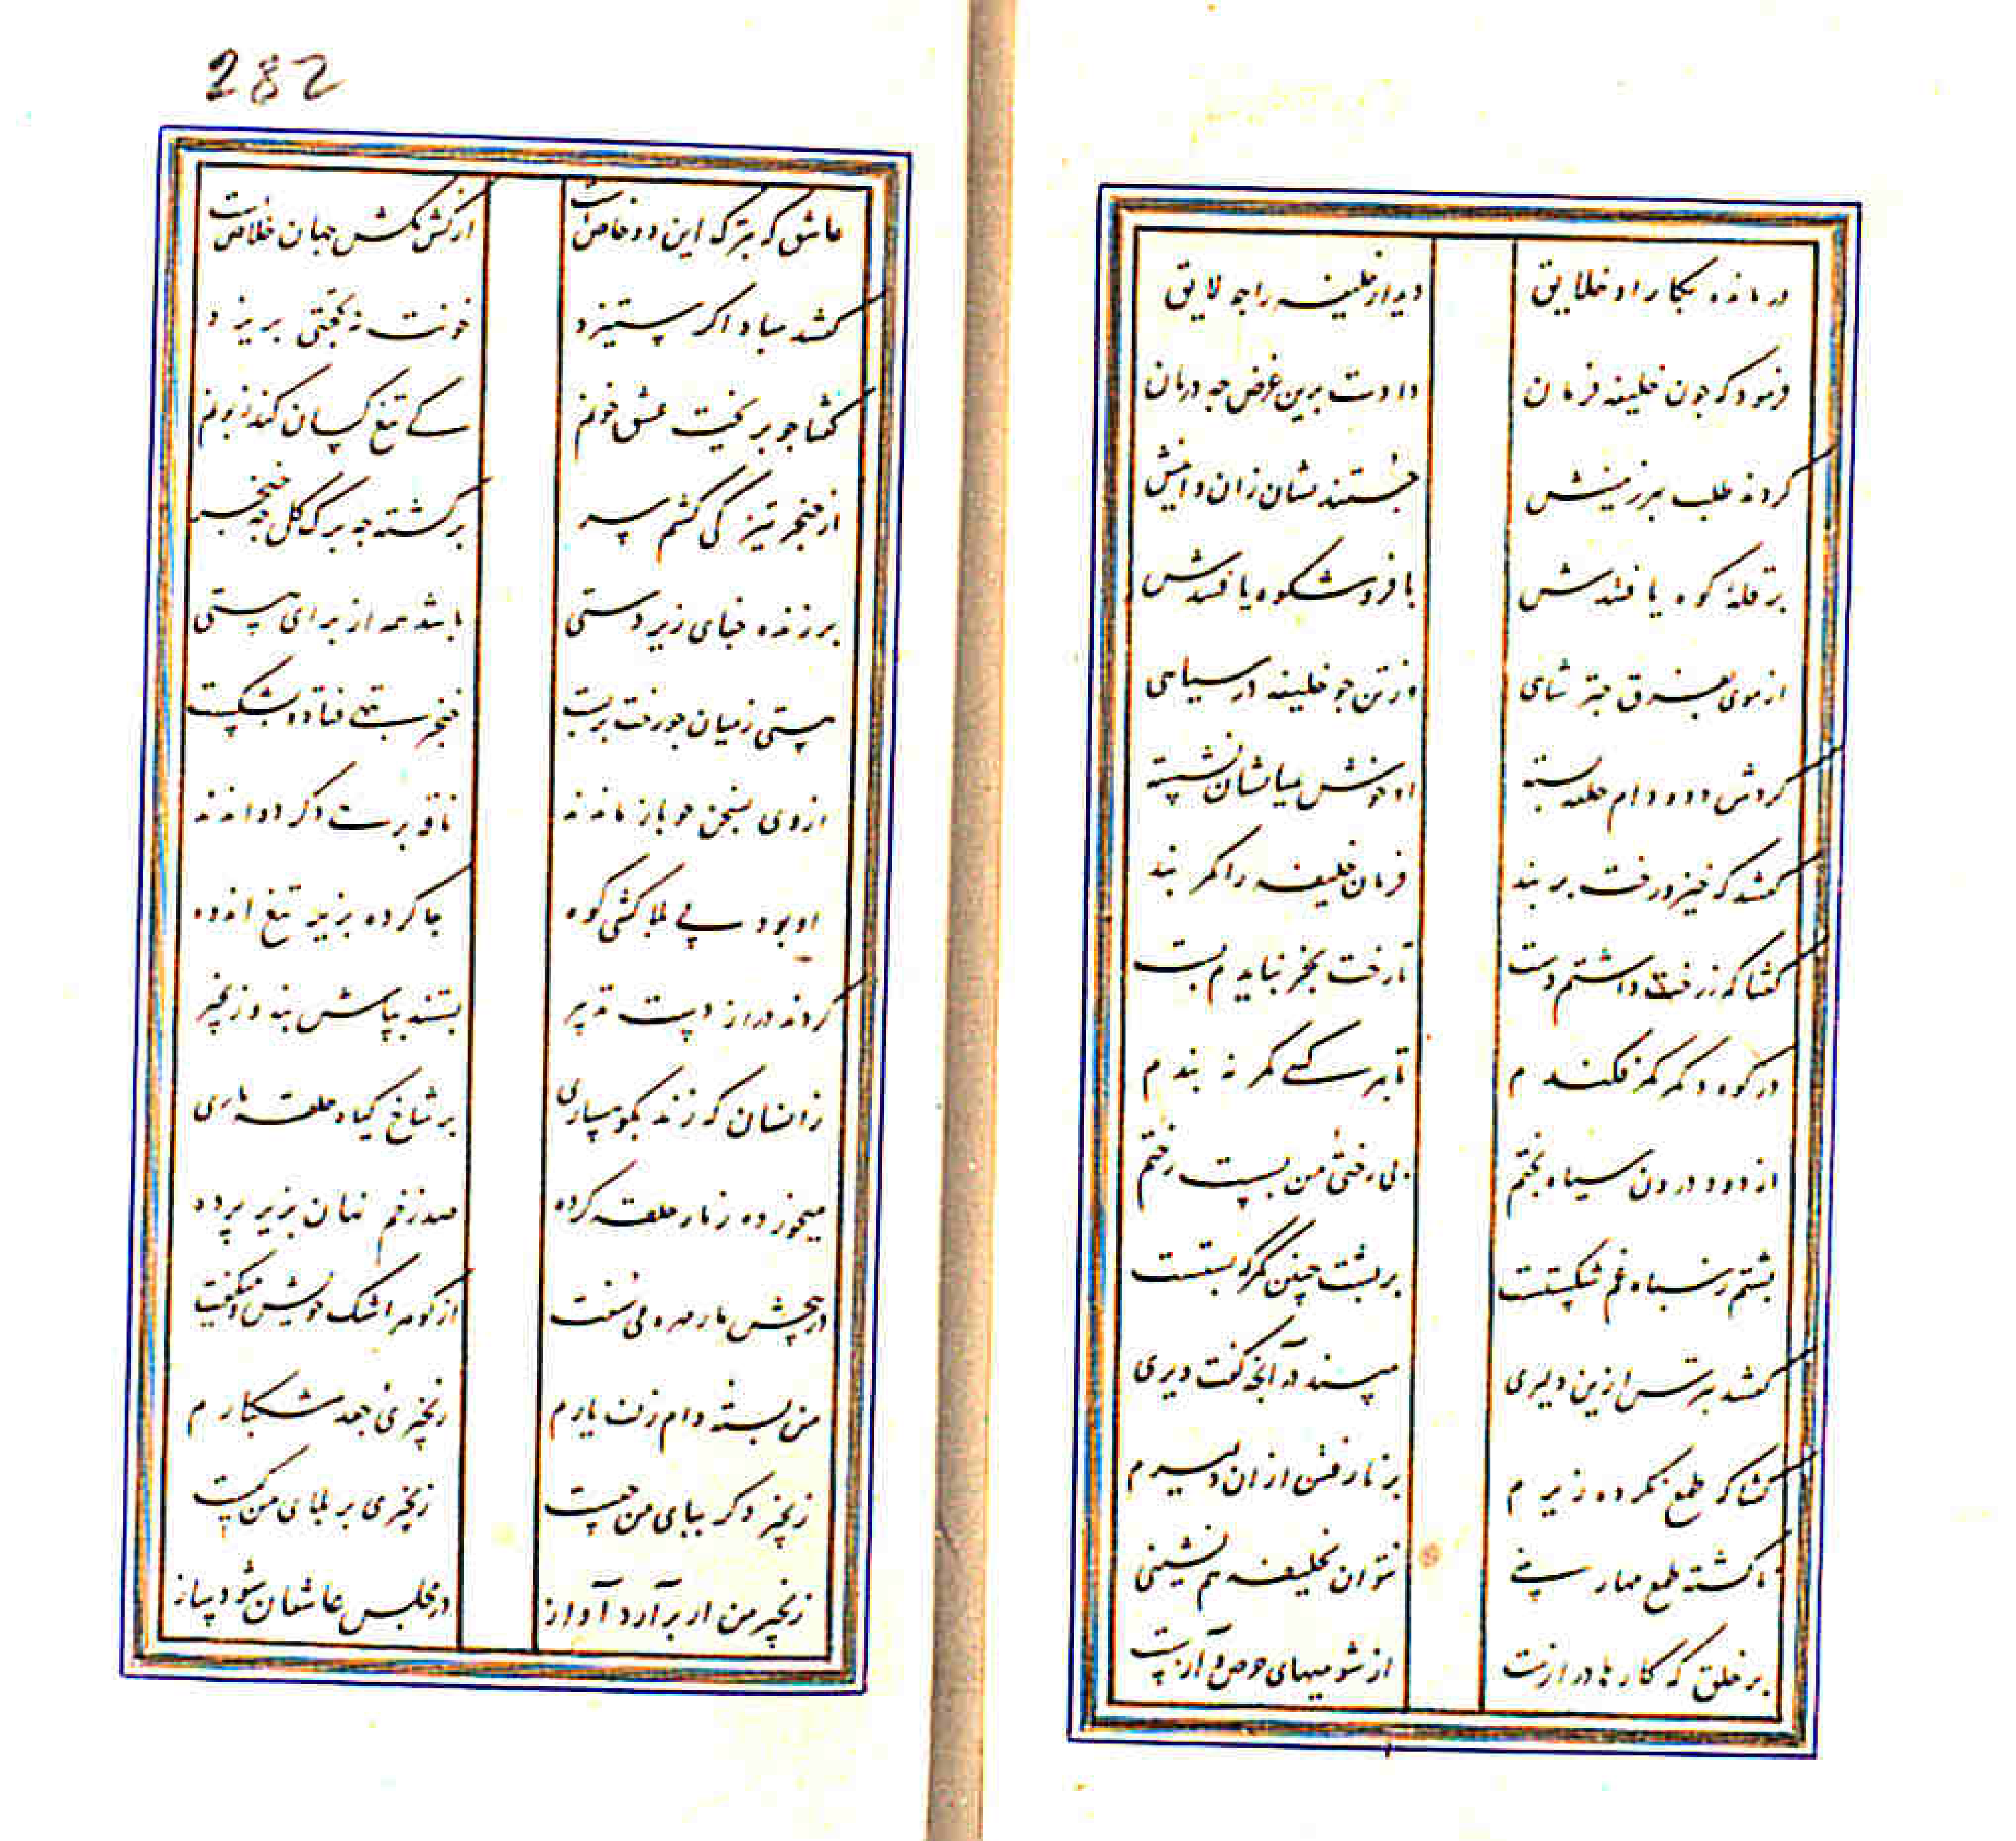 282
درمانده بکار او خلایق
دید از خلیفه را چو لایق
فرمود که چون خلیفه فرمان
دادت برین غرض چه درمان
کردند طلب بهر زمینش
جستند نشان زان و اینش
بر قله کوه یافتندش
با فر و شکوه یافتندش
از موی بفرق چتر شاهی
وز تن چو خلیفه در سیاهی
گردش دد و دام حلقه بسته
او خوش بمیانشان نشسته
گفتند که خیز و رخت بر بند
فرمان خلیفه را کمر بند
گفتا که ز رخت داشتم دست
تا رخت بخر نبایدم بست
در کوه و کمر کمر فکندم
تا بهر کسی کمر نه بندم
از دود درون سیاه بختم
بی رختی من بست رختم
پشتم ز سپاه غم شکستست
بر پشت چنین کمر که بستست
گفتند بترس ازین دلیری
مپسند در آنچه گفت دیری
گفتا که طمع نکرده زیرم
بر نارفتن از آن دلیرم
ناگشته طمع مهار بینی
نتوان بخلیفه هم نشینی
بر خلق که کارها درازست
از شومیهای حرص و آزست
عاشق که بترک این دو خاص است
از کش مکش جهان خلاص است
گفتند مباد اگر ستیزد
خونت ز بختی بریزد
گفتا چو بریخت عشق خونم
کی تیغ کسان کند زبونم
از خنجر تیز کی کشم سر
برکشته چه برگ گل چه خنجر
بر زنده جفای زیردستی
باشد همه از برای هستی
هستی ز میان چو رخت بربست
خنجر بتهی فتاد و بشکست
از وی بسخن چو باز ماندند
ناقه برش دگر دواندند
او بود پی بلاکشی کوه
جا کرده بزیر تیغ اندوه
کردند دراز دست تدبیر
بستند بپاش بند و زنجیر
زانسان که زند بکوهساری
بر شاخ گیاه حلقه ماری
میخورد ز مار حلقه کرده
صد زخم نهان بزیر پرده
در پیچش مار مهره می سفت
از گوهر اشک خویش و میگفت
من بسته دام زلف یارم
زنجیری جعد مشکبارم
زنجیر دگر بپای من چیست
زنجیری بر بلای من کیست
زنجیر من ار برآرد آواز
در مجلس عاشقان شود ساز